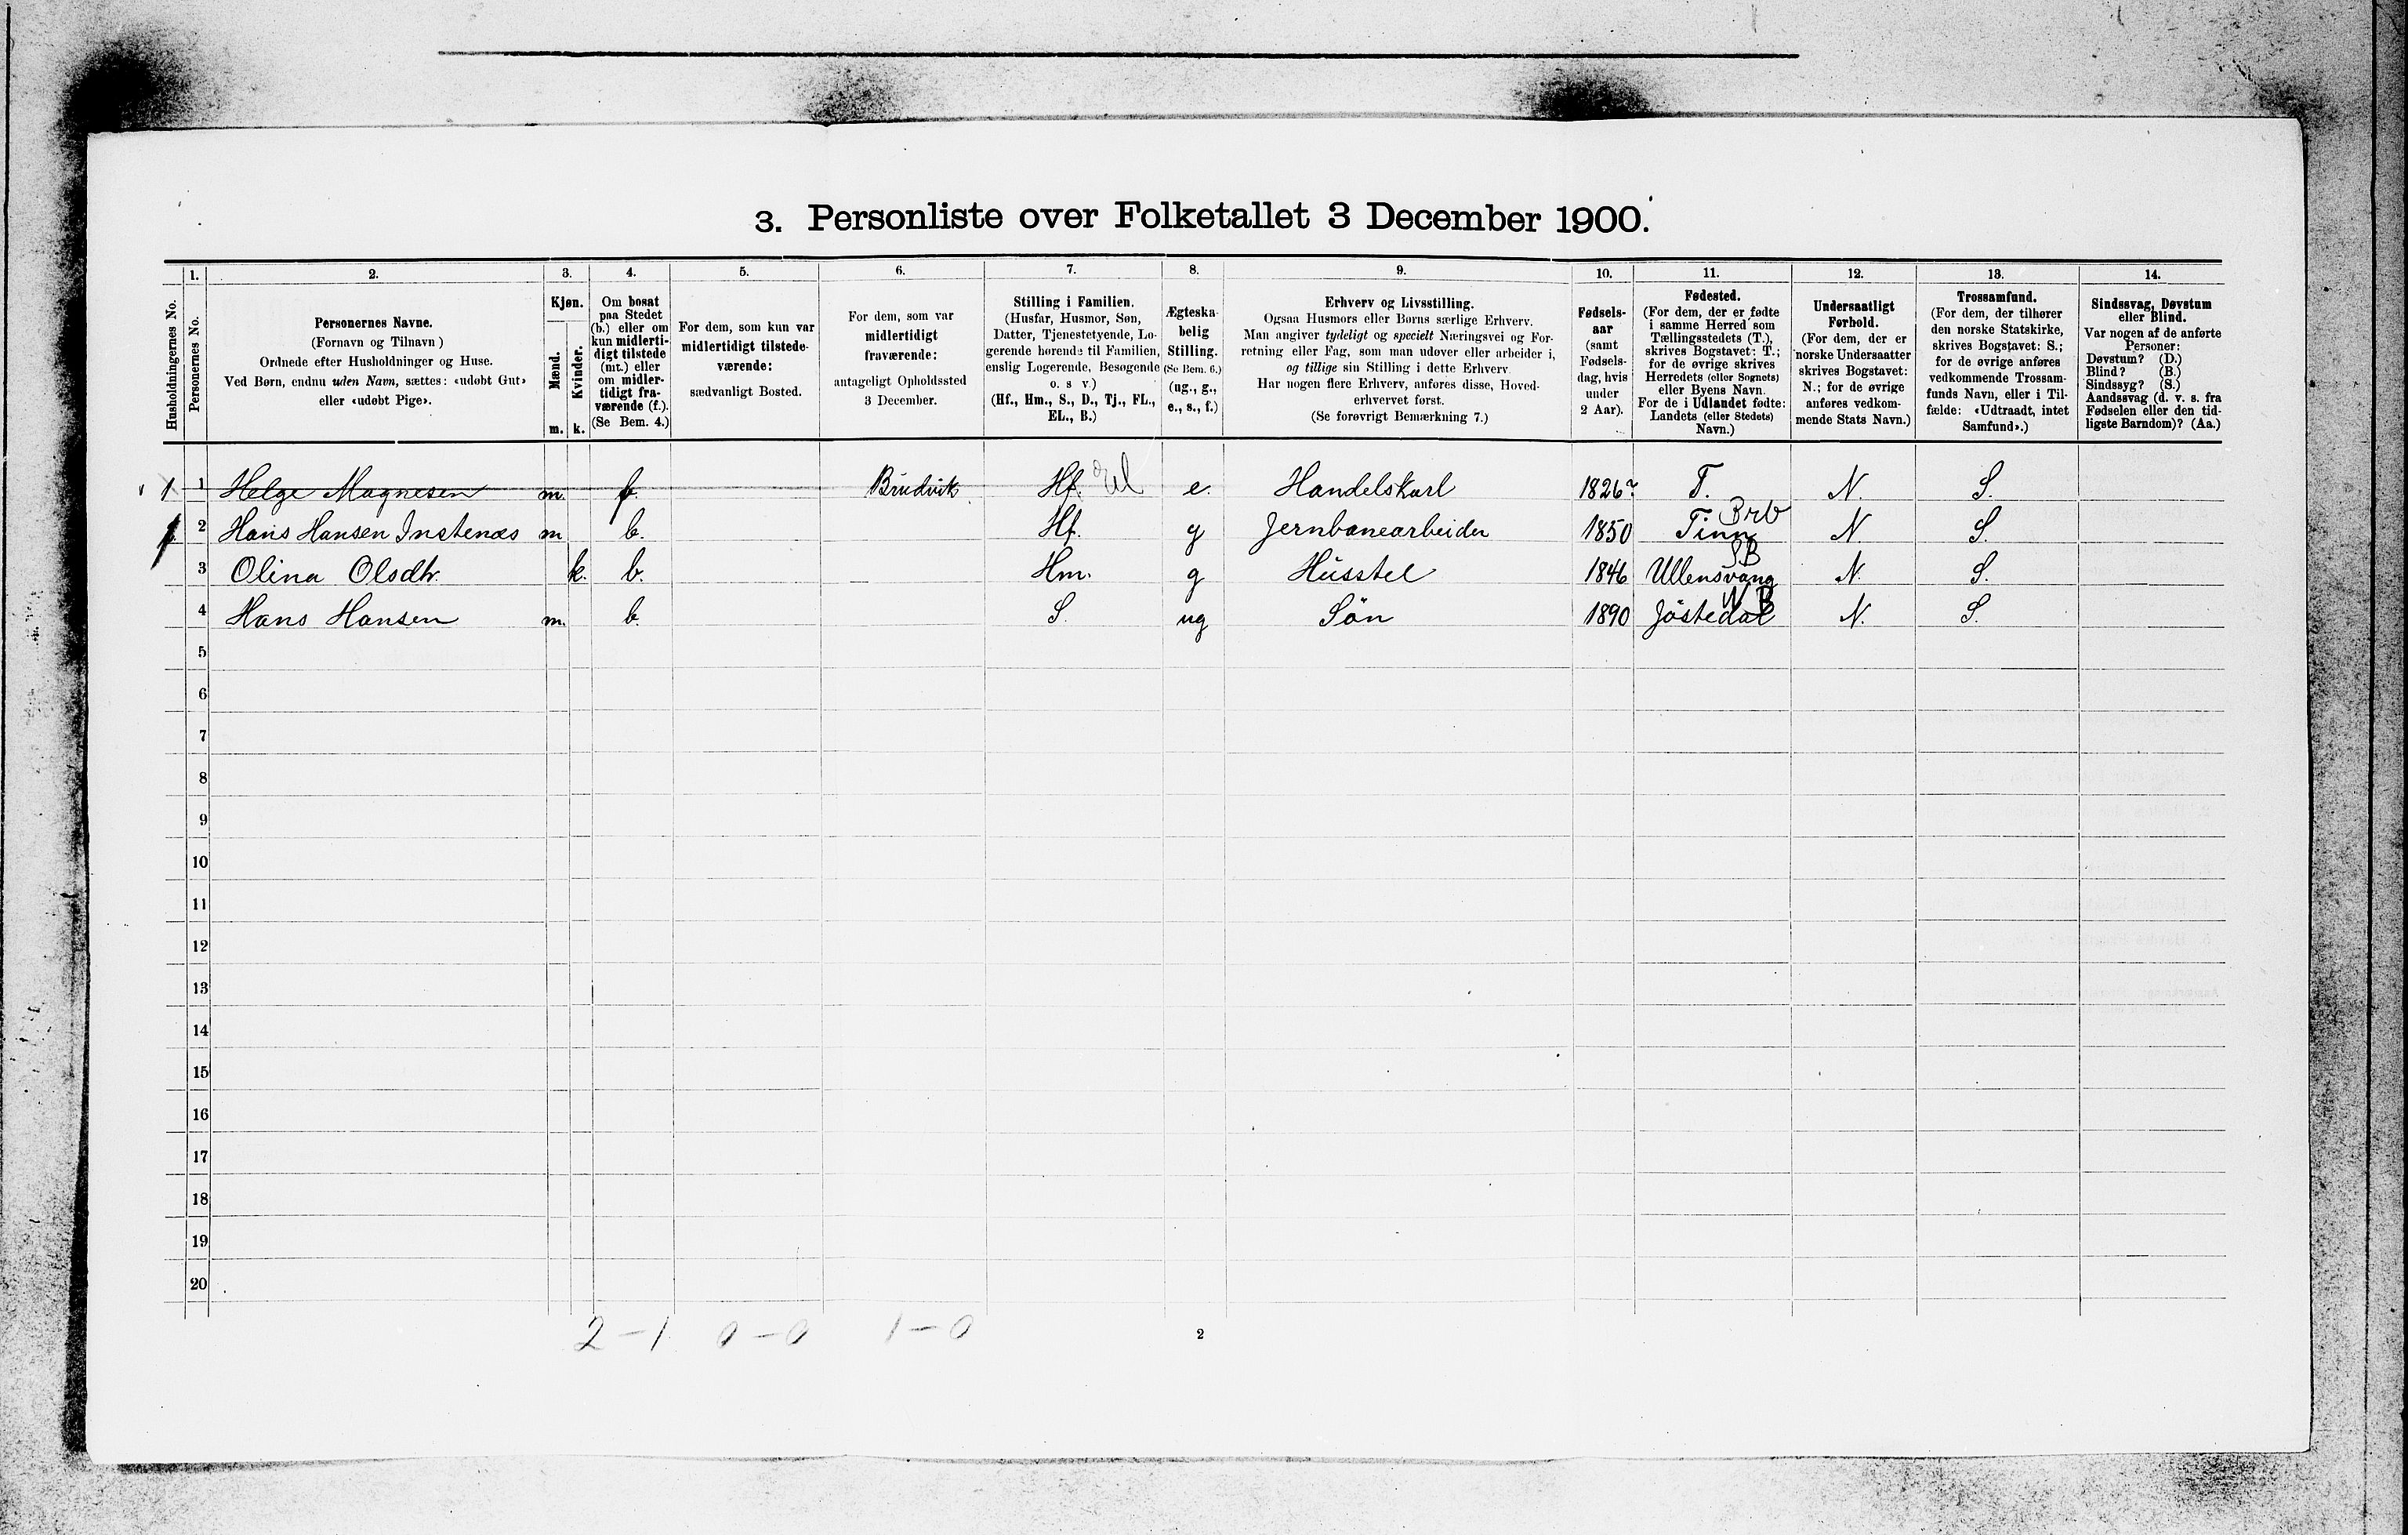 3. Personliste over Folketallet 3 December 1900.
Husholdningernes No.
1.
Personernes No.
2.
Personernes Navne.
(Fornavn og Tilnavn)
Ordnede efter Husholdninger og Huse.
Ved Børn, endnu uden Navn, sættes: «udøbt Gut»
eller «udøbt Pige».
3.
Kjøn.
Mænd.
Kvinder.
m. k.
4.
Om bosat
paa Stedet
(b.) eller om
kun midlerti-
digt tilstede
(mt.) eller
om midler-
tidigt fra-
værende (f.).
(Se Bem. 4.)
5.
For dem, som kun var
midlertidigt tilstede-
værende:
sædvanligt Bosted.
6.
For dem, som var
midlertidigt
fraværende:
antageligt Opholdssted
3 December.
7.
Stilling i Familien.
(Husfar, Husmor, Søn,
Datter, Tjenestetyende, Lo-
gerende hørende til Familien,
enslig Logerende, Besøgende
o. s v.)
(Hf., Hm., S., D., Tj., FL.,
EL., B.)
8.
Ægteska-
belig
Stilling.
(Se Bem. 6.)
(ug., g.,
e., s., f.)
9.
Erhverv og Livsstilling.
Ogsaa Husmors eller Børns særlige Erhverv.
Man angiver tydeligt og specielt Næringsvei og For-
retning eller Fag, som man udøver eller arbeider i,
og tillige sin Stilling i dette Erhverv.
Har nogen flere Erhverv, anføres disse, Hoved-
erhvervet først.
(Se forøvrigt Bemærkning 7.)
10.
Fødsels-
aar
(samt
Fødsels-
dag, hvis
under
2 Aar).
11.
Fødested.
(For dem, der er fødte
i samme Herred som
Tællingsstedets (T.),
skrives Bogstavet: T.;
for de øvrige skrives
Herredets (eller Sognets)
eller Byens Navn.
For de i Udlandet fødte:
Landets (eller Stedets)
Navn.)
12.
Undersaatligt
Forhold.
(For dem, der er
norske Undersaatter
skrives Bogstavet:
N.; for de øvrige
anføres vedkom-
mende Stats Navn.)
13.
Trossamfund.
(For dem, der tilhører
den norske Statskirke,
skrives Bogstavet: S.;
for de øvrige anføres
vedkommende Trossam-
funds Navn, eller i Til-
fælde: «Udtraadt, intet
Samfund».)
14.
Sindssvag, Døvstum
eller Blind.
Var nogen af de anførte
Personer:
Døvstum? (D.)
Blind? (B.)
Sindssyg? (S.)
Aandssvag (d. v. s. fra
Fødselen eller den tid-
ligste Barndom)? (Aa.)
1 1 Helge Magnesen m. f. Brudvik Hf. El e. Handelskarl 1826? T. N. S.
Brb
1 2 Hans Hansen Instenæs m b. Hf. g Jernbanearbeider 1850 Tinn N S.
SB
3 Olina Olsdtr. k. b. Hm. g Husstel 1846 Ullensvang N. S.
NB
4 Hans Hansen m. b. S. ug Søn 1890 Jostedal N. S.
5
6
7
8
9
10
11
12
13
14
15
16
17
18
19
20
2-1 0-0 1-0
2